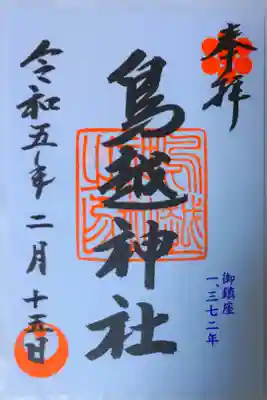 奉拝
御鎮座
一、三七二年
鳥越神社
令和五年二月十五日